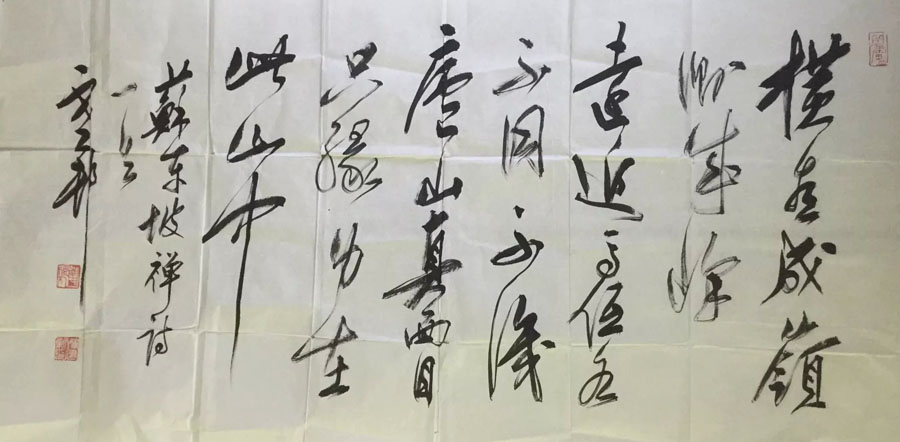 横看成嶺
側成峰
遠近高低各
不同不識
廬山真面目
只緣身在
此山中
蘇东坡禅诗
一首